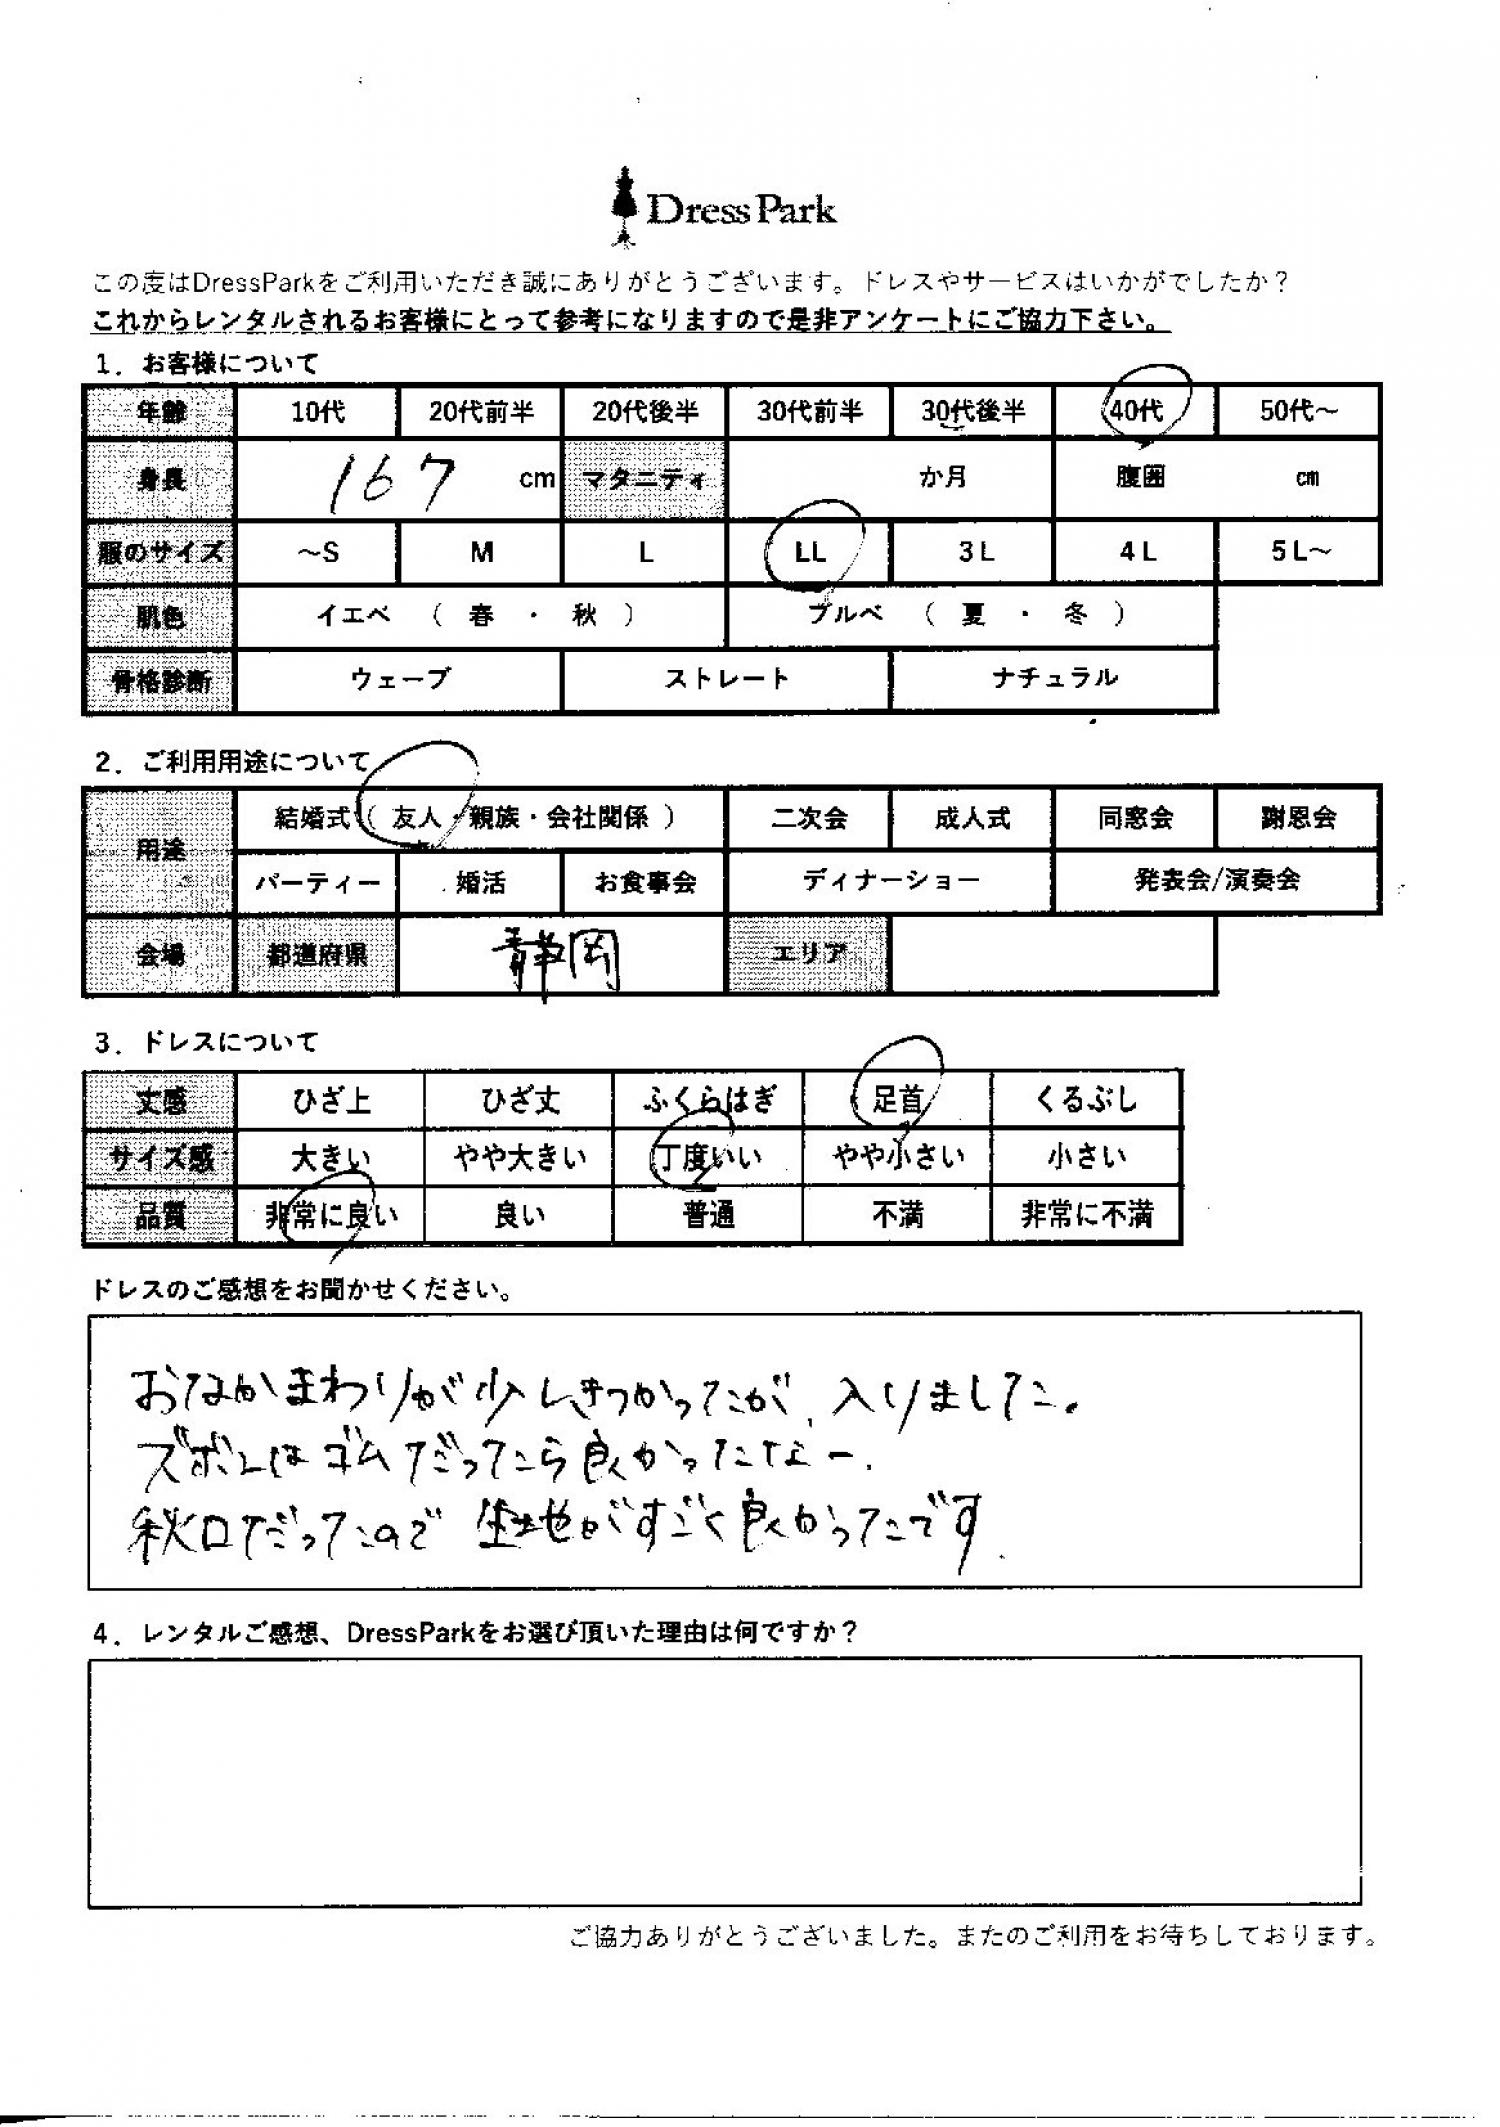 DressPark
この度はDressParkをご利用いただき誠にありがとうございます。ドレスやサービスはいかがでしたか？
これからレンタルされるお客様にとって参考になりますので是非アンケートにご協力下さい。
1．お客様について
年齢 10代 20代前半 20代後半 30代前半 30代後半 40代 50代～
身長 167 cm マタニティ か月 腹囲 cm
服のサイズ ～S M L LL 3L 4L 5L～
肌色 イエベ （ 春 ・ 秋 ） ブルベ （ 夏 ・ 冬 ）
骨格診断 ウェーブ ストレート ナチュラル
2．ご利用用途について
用途 結婚式（ 友人・親族・会社関係 ） 二次会 成人式 同窓会 謝恩会
パーティー 婚活 お食事会 ディナーショー 発表会/演奏会
会場 都道府県 静岡 エリア
3．ドレスについて
丈感 ひざ上 ひざ丈 ふくらはぎ 足首 くるぶし
サイズ感 大きい やや大きい 丁度いい やや小さい 小さい
品質 非常に良い 良い 普通 不満 非常に不満
ドレスのご感想をお聞かせください。
おなかまわりが少しきつかったが、入りました。
ズボンはゴムだったら良かったなー.
秋口だったので 生地がすごく良かったです.
4．レンタルご感想、DressParkをお選び頂いた理由は何ですか？
ご協力ありがとうございました。またのご利用をお待ちしております。